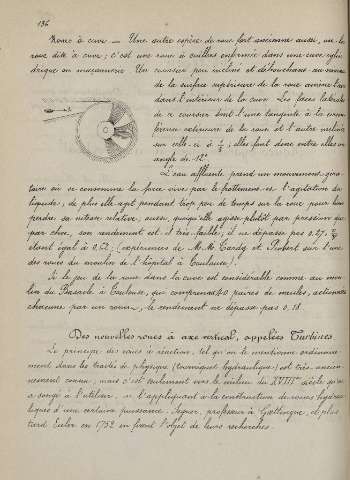 136
Roue à cuve — Une autre espèce de roue fort ancienne aussi, est la
roue dite à cuve; c'est une roue à cuillers enfermée dans une cuve cylin-
drique en maçonnerie. Un coursier peu incliné et débouchant au-dessous
de la surface supérieure de la roue amène l'eau
dans l'intérieur de la cuve. Les faces latérales
de ce coursier sont l'une tangente à la circon-
férence extérieure de la roue et l'autre inclinée
sur celle-ci à ; elles font donc entre elles un
angle de 12°.
L'eau affluente prend un mouvement gira-
toire où se consomme la force vive par le frottement et l'agitation du
liquide; de plus elle agit pendant trop peu de temps sur la roue pour bien
perdre sa vitesse relative; aussi, quoiqu'elle agisse plutôt par pression que
par choc, son rendement est-il très faible; il ne dépasse pas 0.27,
étant égal à 0.62, (expériences de M.M. Tardy et Piobert sur l'une
des roues du moulin de l'hôpital à Toulouse).
Si le jeu de la roue dans la cuve est considérable comme au mou-
lin du Basacle à Toulouse, qui comprenait paires de meules, actionnées
chacune par un rouet, le rendement ne dépasse pas 0.18
Des nouvelles roues à axe vertical, appelées Turbines
Le principe des roues à réaction, tel qu'on le mentionne ordinaire-
ment dans les traités de physique (tourniquet hydraulique) est très ancien-
nement connu; mais c'est seulement vers le milieu du XVIIIe siècle qu'on
a songé à l'utiliser, en l'appliquant à la construction de roues hydrau-
liques d'une certaine puissance. Segner, professeur à Goettingue, et plus
tard Euler en 1752 en firent l'objet de leurs recherches.